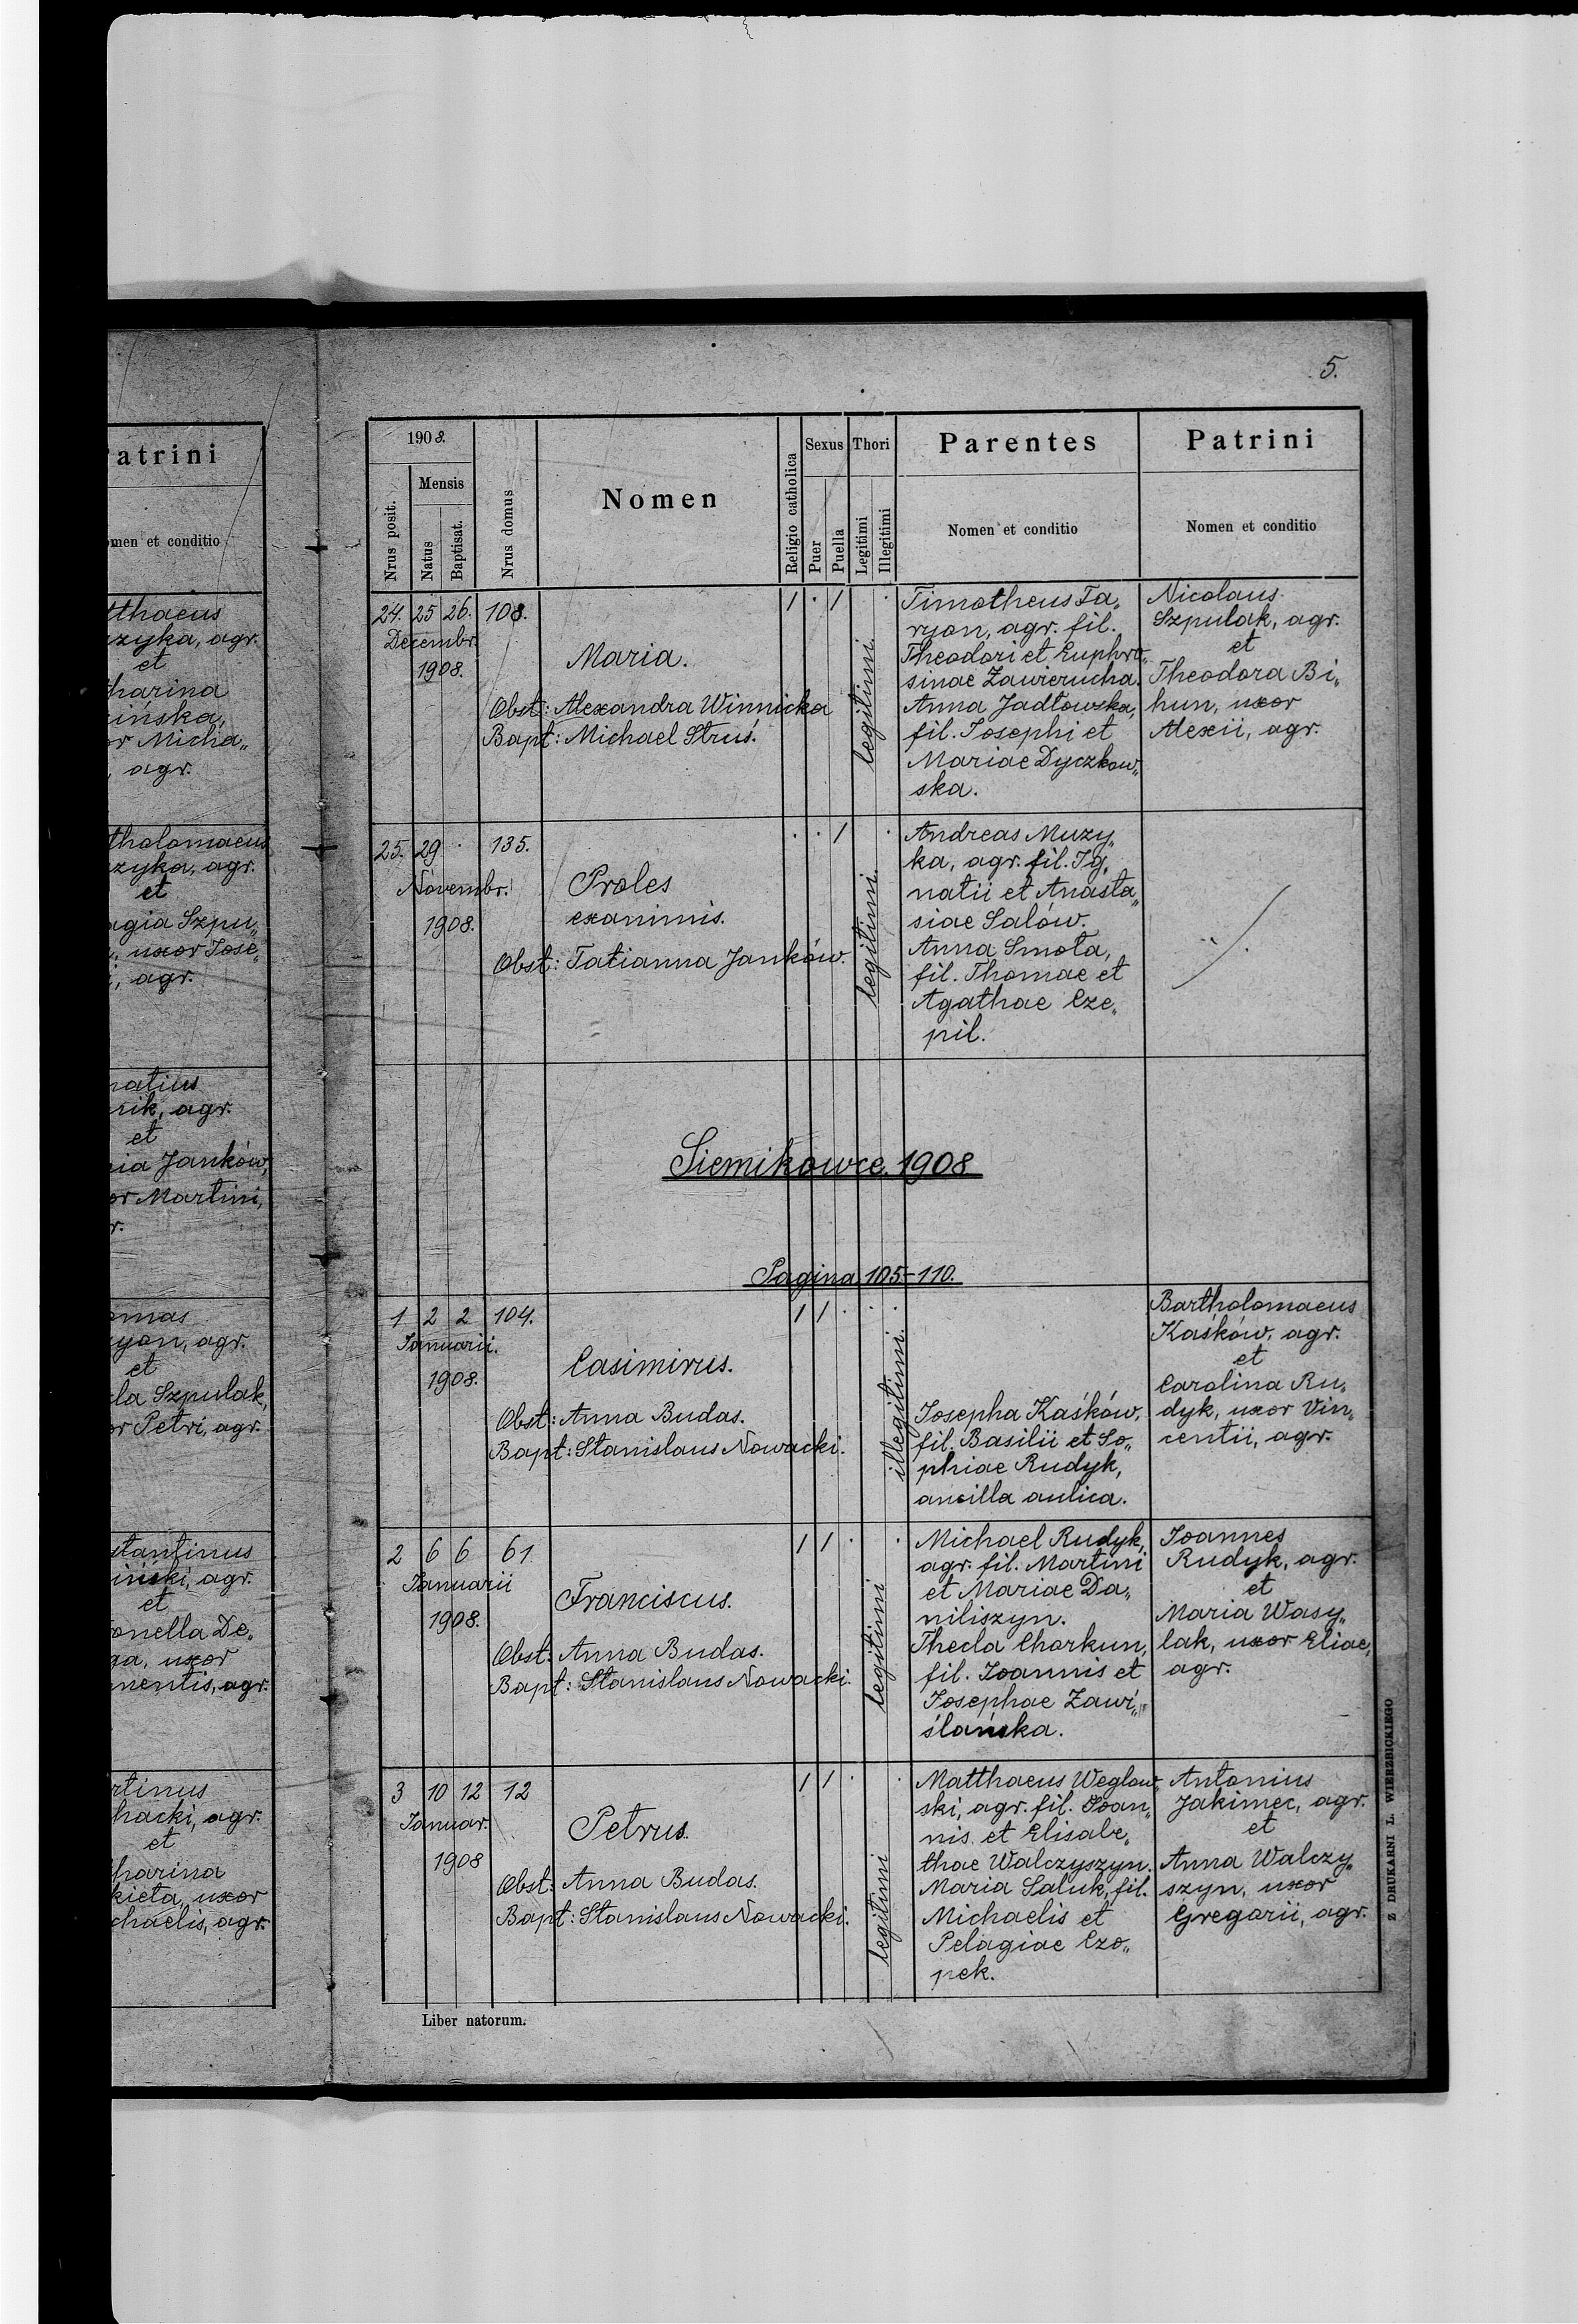 5.
atrini
omen et conditio
tthaeus
zyka, agr.
et
tharina
ińska,
or Micha„
, agr.
tholomaeus
zyka, agr.
et
agia Szpu„
, uxor Jose„
i, agr.
natius
rik, agr.
et
nia Janków,
or Martini,
r.
omas
ryon, agr.
et
cla Szpulak,
or Petri, agr.
stantinus
iński, agr.
et
onella De„
ga, uxor
mentis, agr.
rtinus
hacki, agr.
et
harina
kieta, uxor
chaelis, agr.
1908.
Nrus posit.
Mensis
Natus
Baptisat.
Nrus domus
Nomen
Religio catholica
Sexus
Puer
Puella
Thori
Legitimi
Illegitimi
Parentes
Nomen et conditio
Patrini
Nomen et conditio
24. 25 26. 108.
Decembr.
1908.
Maria.
Obst: Alexandra Winnicka
Bapt: Michael Struś.
1 . 1 .
legitimi.
Timotheus Ta„
ryon, agr. fil.
Theodori et Euphro„
sinae Zawierucha.
Anna Jadłowska,
fil. Josephi et
Mariae Dyczkow„
ska.
Nicolaus
Szpulak, agr.
et
Theodora Bi„
hun, uxor
Alexii, agr.
25. 29 . 135.
Novembr.
1908.
Proles
exanimis.
Obst: Tatianna Janków.
. . 1 .
legitimi.
Andreas Muzy„
ka, agr. fil. Ig„
natii et Anasta„
siae Salów.
Anna Smota,
fil. Thomae et
Agathae Cze„
pil.
Siemikowce. 1908
Pagina 105-110.
1 2 2 104.
Januarii.
1908.
Casimirus.
Obst: Anna Budas.
Bapt: Stanislaus Nowacki.
1 1 . . .
illegitimi.
Josepha Kaśków,
fil. Basilii et So„
phiae Rudyk,
ancilla aulica.
Bartholomaeus
Kaśków, agr.
et
Carolina Ru„
dyk, uxor Vin„
centii, agr.
2 6 6 61
Januarii
1908.
Franciscus.
Obst: Anna Budas.
Bapt: Stanislaus Nowacki.
1 1 . .
legitimi
Michael Rudyk,
agr. fil. Martini
et Mariae Da„
niliszyn.
Thecla Charkun,
fil. Joannis et
Josephae Zawi„
ślańska.
Joannes
Rudyk, agr.
et
Maria Wasy„
lak, uxor Eliae,
agr.
3 10 12 12
Januar.
1908
Petrus.
Obst: Anna Budas.
Bapt: Stanislaus Nowacki.
1 1 . .
legitimi
Matthaeus Weglow„
ski, agr. fil. Joan„
nis et Elisabe„
thae Walczyszyn.
Maria Saluk, fil.
Michaelis et
Pelagiae Czo„
pek.
Antonius
Jakimec, agr.
et
Anna Walczy„
szyn, uxor
Gregorii, agr.
Liber natorum.
Z DRUKARNI L. WIERZBICKIEGO